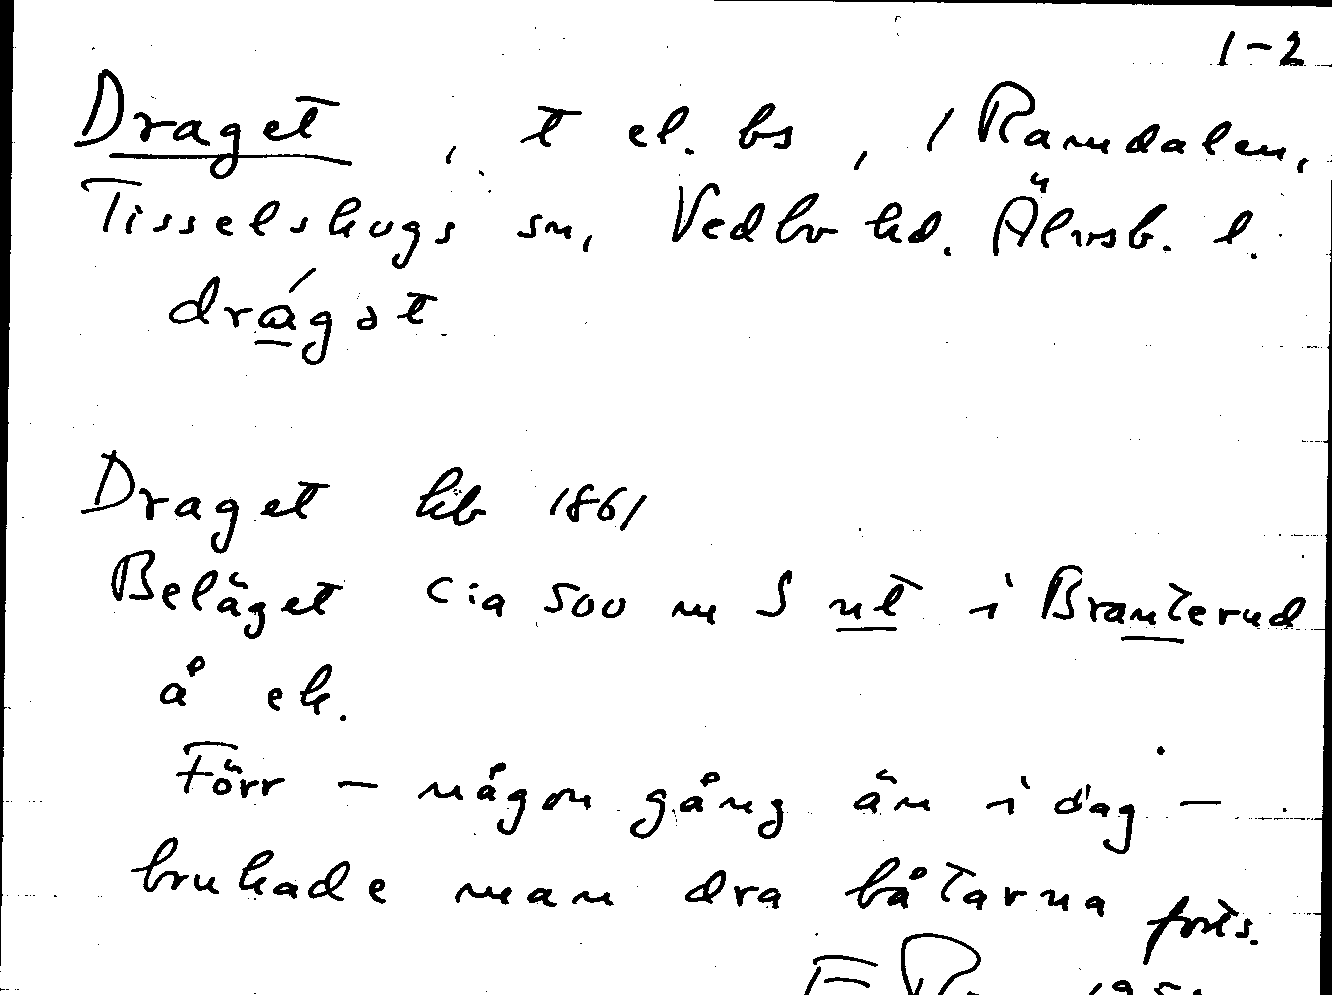 1-2
Draget, t el. bs, i Ramdalen,
Tisselskogs sn, Vedbo hd. Älvsb. l.
drágət
Draget hb 1861
Beläget cia 500 m S nt i Branterud
å ek.
Förr - någon gång än i dag -
brukade man dra båtarna forts.